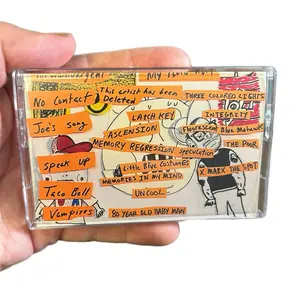 No Contact
This artist has been
Deleted
THREE COLORED LIGHTS
Joe's song
LATCH KEY
INTEGRITY
ASCENSION
Fluorescent Blue Mohawk
MEMORY REGRESSION
speculation
THE POOR
Speak up
Little Blue Costumes
X MARX THE SPOT
MEMORIES IN MY MIND
Taco Bell
UNCOOL
Vampires
80 YEAR OLD BABY MAN